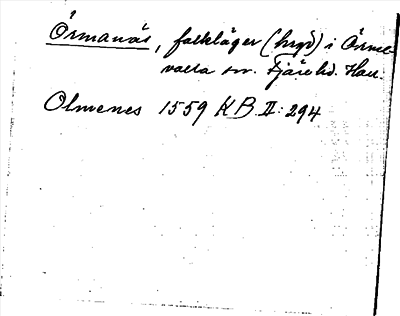 Örmanäs, falkläger (hygd) i Örme-
valla sn. Fjäre hd. Hall.
Olmenes 1559 KB II: 294